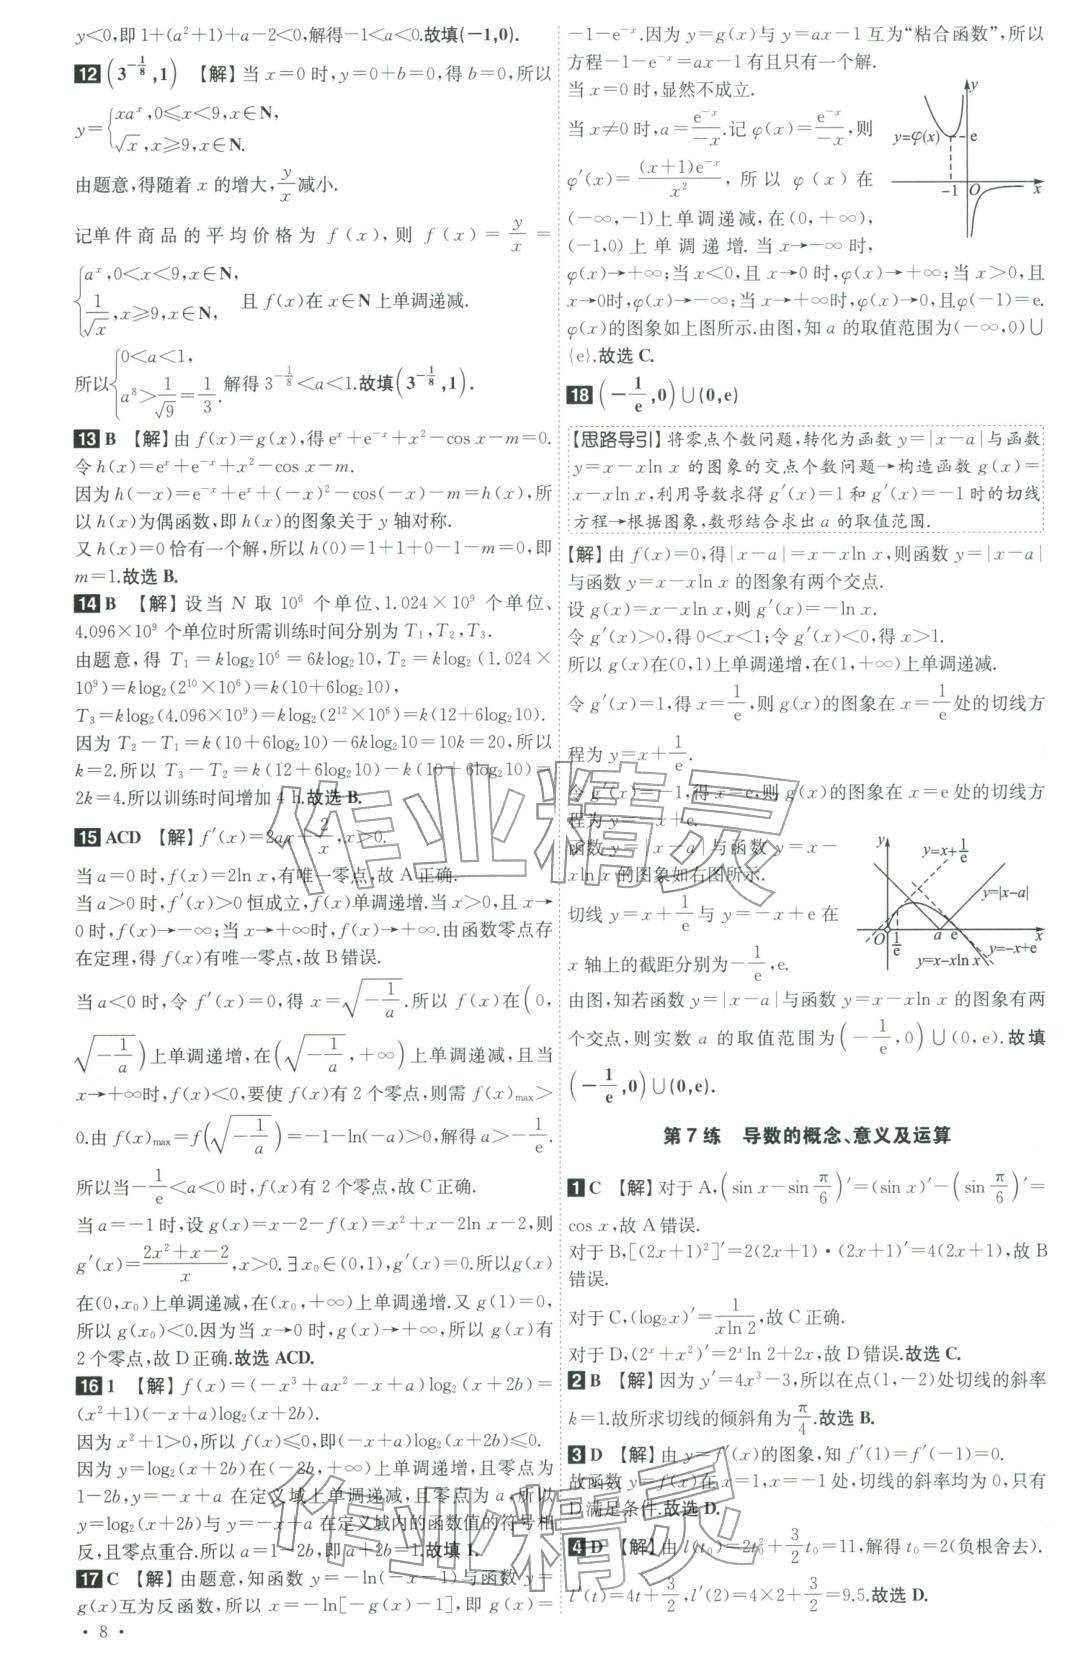 y<0,即1+(a²+1)+a-2<0,解得-1<a<0.故填(-1,0).
12 (3^{-1/8},1) 【解】当x=0时,y=0+b=0,得b=0,所以
y={xa^x,0≤x<9,x∈N,
√x,x≥9,x∈N.
由题意,得随着x的增大,y/x减小.
记单件商品的平均价格为f(x),则f(x)=y/x=
{a^x,0<x<9,x∈N,
1/√x,x≥9,x∈N, 且f(x)在x∈N上单调递减.
所以{0<a<1,
a⁸>1/√9=1/3. 解得3^{-1/8}<a<1.故填(3^{-1/8},1).
13 B 【解】由f(x)=g(x),得e^x+e^{-x}+x²-cos x-m=0.
令h(x)=e^x+e^{-x}+x²-cos x-m.
因为h(-x)=e^{-x}+e^x+(-x)²-cos(-x)-m=h(x),所
以h(x)为偶函数,即h(x)的图象关于y轴对称.
又h(x)=0恰有一个解,所以h(0)=1+1+0-1-m=0,即
m=1.故选B.
14 B 【解】设当N取10⁶个单位、1.024×10⁹个单位、
4.096×10⁹个单位时所需训练时间分别为T₁,T₂,T₃.
由题意,得T₁=klog₂10⁶=6klog₂10,T₂=klog₂(1.024×
10⁹)=klog₂(2¹⁰×10⁶)=k(10+6log₂10),
T₃=klog₂(4.096×10⁹)=klog₂(2¹²×10⁶)=k(12+6log₂10).
因为T₂-T₁=k(10+6log₂10)-6klog₂10=10k=20,所以
k=2.所以T₃-T₂=k(12+6log₂10)-k(10+6log₂10)=
2k=4.所以训练时间增加4 h.故选B.
15 ACD 【解】f′(x)=2ax+2/x,x>0.
当a=0时,f(x)=2ln x,有唯一零点,故A正确.
当a>0时,f′(x)>0恒成立,f(x)单调递增.当x>0,且x→
0时,f(x)→-∞;当x→+∞时,f(x)→+∞.由函数零点存
在定理,得f(x)有唯一零点,故B错误.
当a<0时,令f′(x)=0,得x=√(-1/a).所以f(x)在(0,
√(-1/a))上单调递增,在(√(-1/a),+∞)上单调递减,且当
x→+∞时,f(x)<0,要使f(x)有2个零点,则需f(x)max>
0.由f(x)max=f(√(-1/a))=-1-ln(-a)>0,解得a>-1/e.
所以当-1/e<a<0时,f(x)有2个零点,故C正确.
当a=-1时,设g(x)=x-2-f(x)=x²+x-2ln x-2,则
g′(x)=(2x²+x-2)/x,x>0.∃x₀∈(0,1),g′(x)=0.所以g(x)
在(0,x₀)上单调递减,在(x₀,+∞)上单调递增.又g(1)=0,
所以g(x₀)<0.因为当x→0时,g(x)→+∞,所以g(x)有
2个零点,故D正确.故选ACD.
16 1 【解】f(x)=(-x³+ax²-x+a)log₂(x+2b)=
(x²+1)(-x+a)log₂(x+2b).
因为x²+1>0,所以f(x)≤0,即(-x+a)log₂(x+2b)≤0.
因为y=log₂(x+2b)在(-2b,+∞)上单调递增,且零点为
1-2b,y=-x+a在定义域上单调递减,且零点为a,所以
y=log₂(x+2b)与y=-x+a在定义域内的函数值的符号相
反,且零点重合.所以a=1-2b,即a+2b=1.故填1.
17 C 【解】由题意,知函数y=-ln(-x-1)与函数y=
g(x)互为反函数,所以x=-ln[-g(x)-1],即g(x)=
· 8 ·
-1-e^{-x}.因为y=g(x)与y=ax-1互为“粘合函数”,所以
方程-1-e^{-x}=ax-1有且只有一个解.
当x=0时,显然不成立.
当x≠0时,a=e^{-x}/-x.记φ(x)=e^{-x}/-x,则
φ′(x)=(x+1)e^{-x}/x²,所以φ(x)在
(-∞,-1)上单调递减,在(0,+∞),
(-1,0)上单调递增.当x→-∞时,
y
y=φ(x)
e
-1
O
x
φ(x)→+∞;当x<0,且x→0时,φ(x)→+∞;当x>0,且
x→0时,φ(x)→-∞;当x→+∞时,φ(x)→0,且φ(-1)=e.
φ(x)的图象如上图所示.由图,知a的取值范围为(-∞,0)∪
{e}.故选C.
18 (-1/e,0)∪(0,e)
【思路导引】将零点个数问题,转化为函数y=|x-a|与函数
y=x-xln x的图象的交点个数问题→构造函数g(x)=
x-xln x,利用导数求得g′(x)=1和g′(x)=-1时的切线
方程→根据图象,数形结合求出a的取值范围.
【解】由f(x)=0,得|x-a|=x-xln x,则函数y=|x-a|
与函数y=x-xln x的图象有两个交点.
设g(x)=x-xln x,则g′(x)=-ln x.
令g′(x)>0,得0<x<1;令g′(x)<0,得x>1.
所以g(x)在(0,1)上单调递增,在(1,+∞)上单调递减.
令g′(x)=1,得x=1/e,则g(x)的图象在x=1/e处的切线方
程为y=x+1/e.
令g′(x)=-1,得x=e,则g(x)的图象在x=e处的切线方
程为y=-x+e.
函数y=|x-a|与函数y=x-
xln x的图象如右图所示.
切线y=x+1/e与y=-x+e在
x轴上的截距分别为-1/e,e.
y
y=x+1/e
y=|x-a|
O
1/e
a
e
x
y=-x+e
y=x-xln x
由图,知若函数y=|x-a|与函数y=x-xln x的图象有两
个交点,则实数a的取值范围为(-1/e,0)∪(0,e).故填
(-1/e,0)∪(0,e).
第7练 导数的概念、意义及运算
1 C 【解】对于A,(sin x-sin π/6)′=(sin x)′-(sin π/6)′=
cos x,故A错误.
对于B,[(2x+1)²]′=2(2x+1)·(2x+1)′=4(2x+1),故B
错误.
对于C,(log₂x)′=1/(xln 2),故C正确.
对于D,(2^x+x²)′=2^x ln 2+2x,故D错误.故选C.
2 B 【解】因为y′=4x³-3,所以在点(1,-2)处切线的斜率
k=1.故所求切线的倾斜角为π/4.故选B.
3 D 【解】由y=f′(x)的图象,知f′(1)=f′(-1)=0.
故函数y=f(x)在x=1,x=-1处,切线的斜率均为0,只有
D满足条件.故选D.
4 D 【解】由l(t₀)=2t₀²+3/2t₀=11,解得t₀=2(负根舍去).
l′(t)=4t+3/2,l′(2)=4×2+3/2=9.5.故选D.
作业精灵
作业精灵